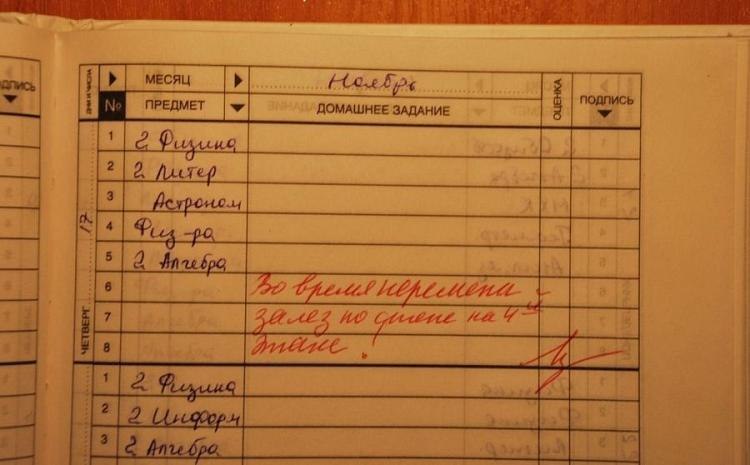 ПОДПИСЬ
ДНИ И ЧИСЛА
МЕСЯЦ Ноябрь
№ ПРЕДМЕТ ДОМАШНЕЕ ЗАДАНИЕ ОЦЕНКА ПОДПИСЬ
ЧЕТВЕРГ 17
1 2 Физика
2 2 Литер
3 Астроном
4 Физ-ра
5 2 Алгебра
6 Во время перемены
7 залез по стене на 4 ый
8 этаж!
1 2 Физика
2 2 Информ
3 2 Алгебра